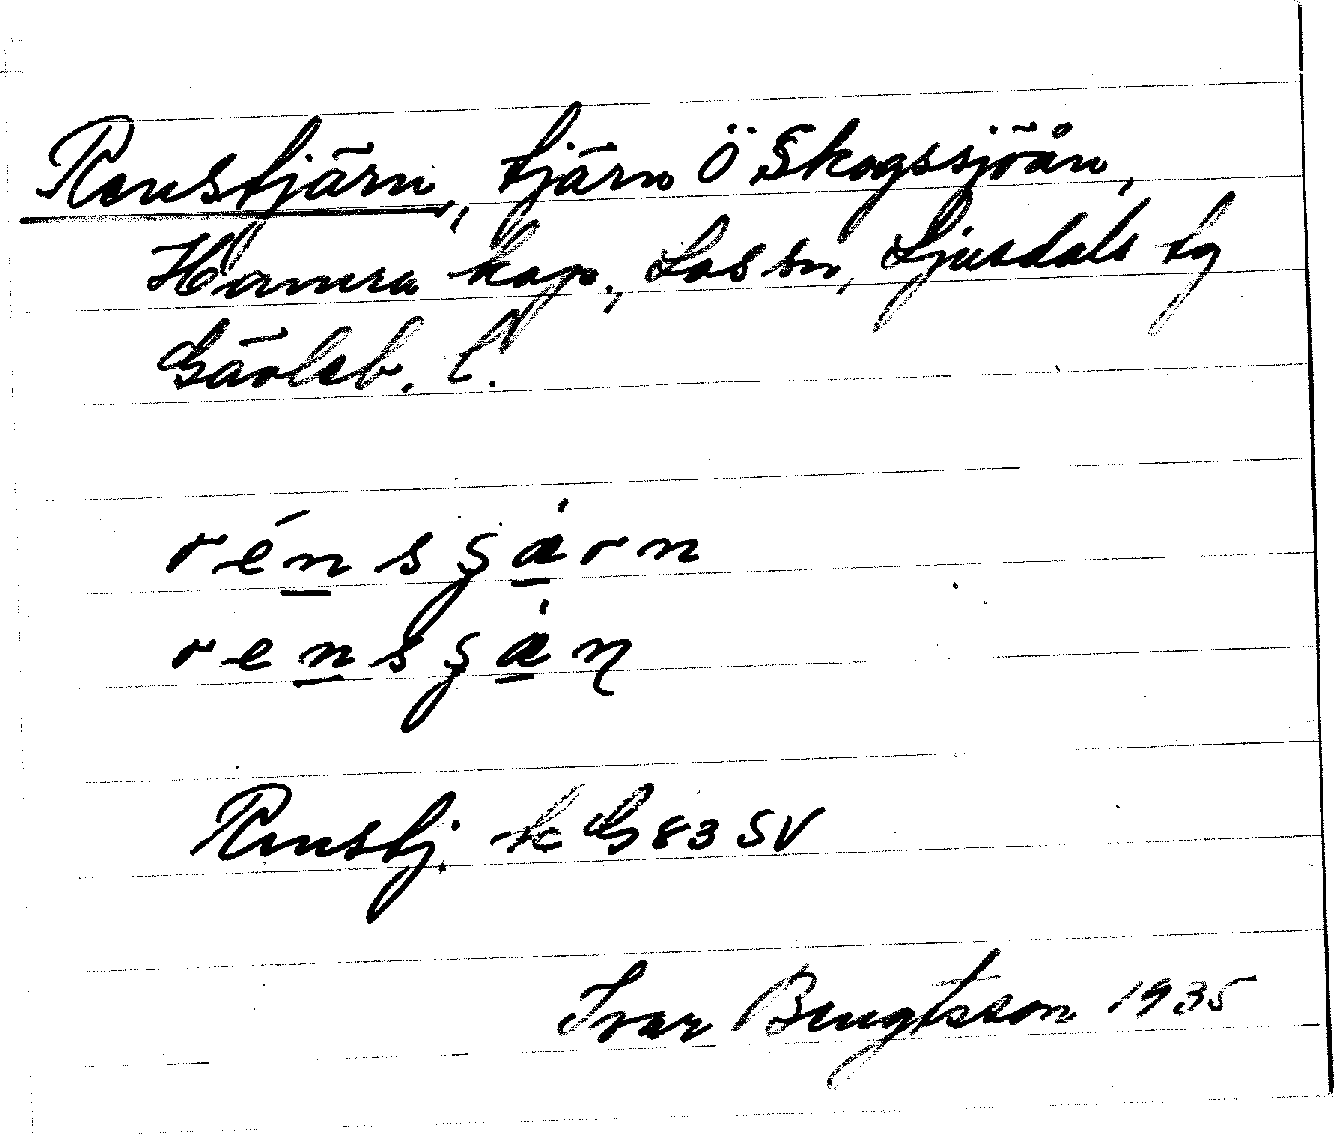 Renstjärn, tjärn Ö Skogssjöån,
Hamra kap., Los sn, Ljusdals tg
Gävleb. l.
rénsʂärn
rensʂäɳ
Renstj. k G 83 SV
Ivar Bengtsson 1935